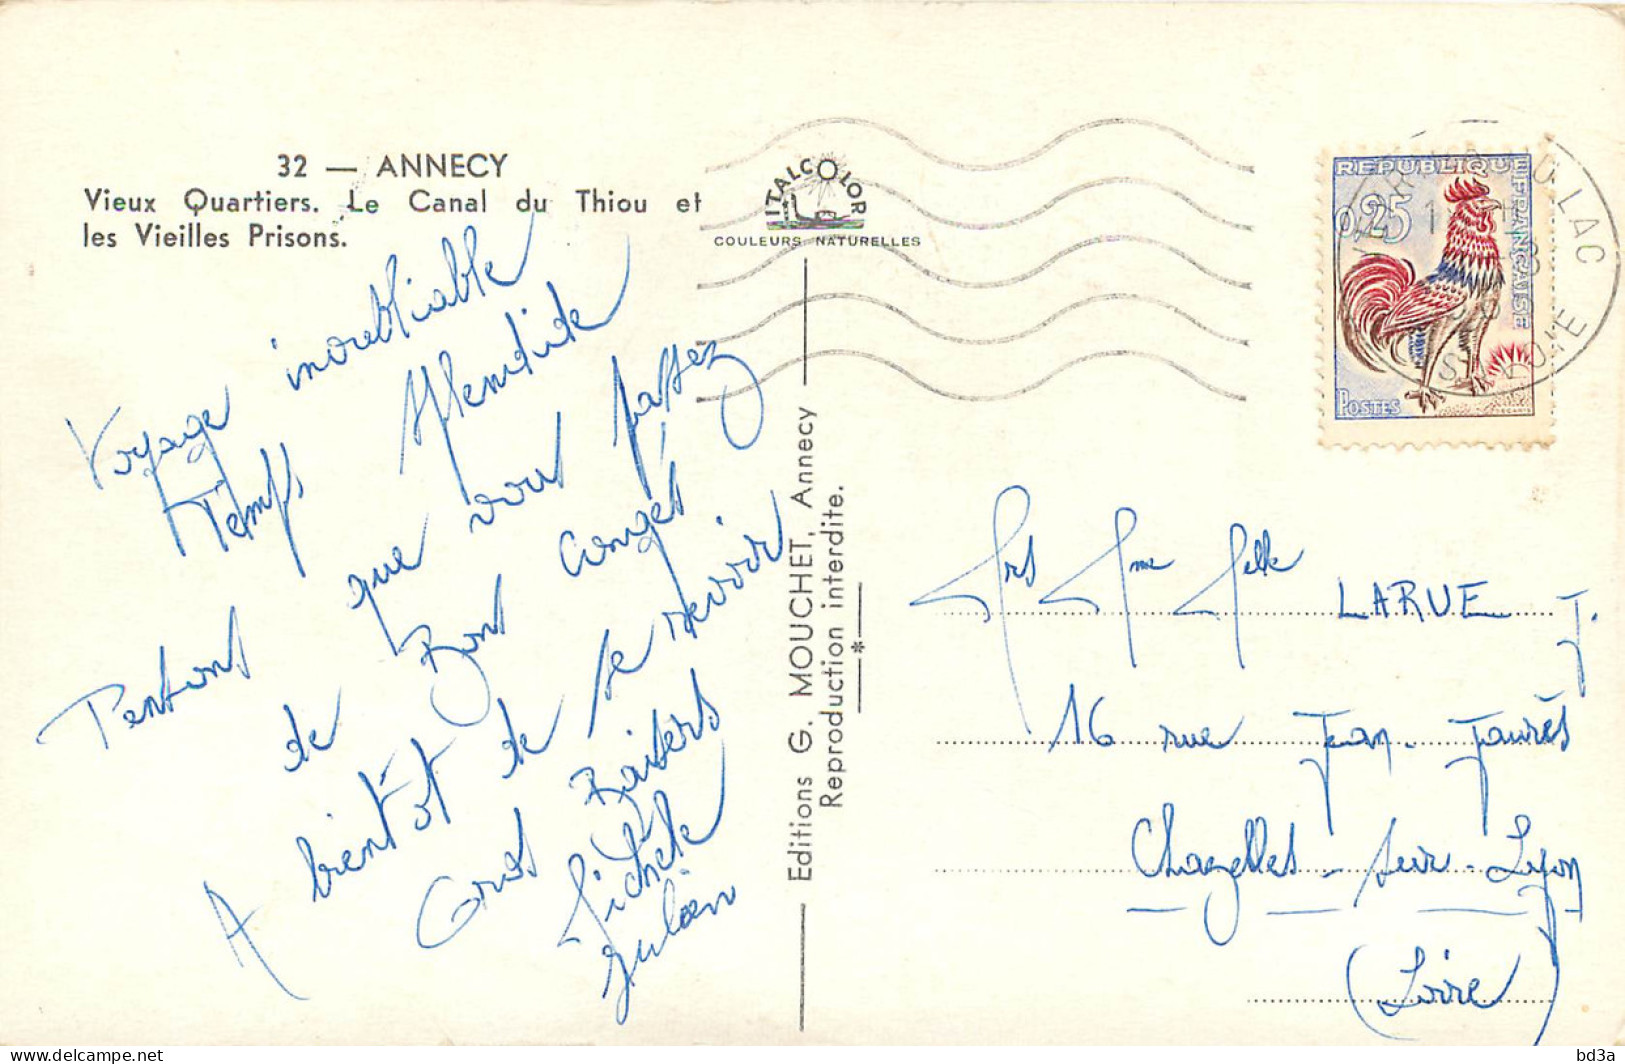 32 — ANNECY
Vieux Quartiers. Le Canal du Thiou et
les Vieilles Prisons.
ITALCOLOR
COULEURS NATURELLES
REPUBLIQUE FRANÇAISE
0,25
POSTES
DU LAC
Voyage inoubliable
Temps splendide
Pensons que vous passez
de Bons congés
A bientôt de se revoir
Gros Baisers
Michele
Editions G. MOUCHET, Annecy
Reproduction interdite.
*
Mrs Mme Melle LARUE J.
16 rue Jean-Jaurès
Chazelles-sur-Lyon
(Loire)
bd3a